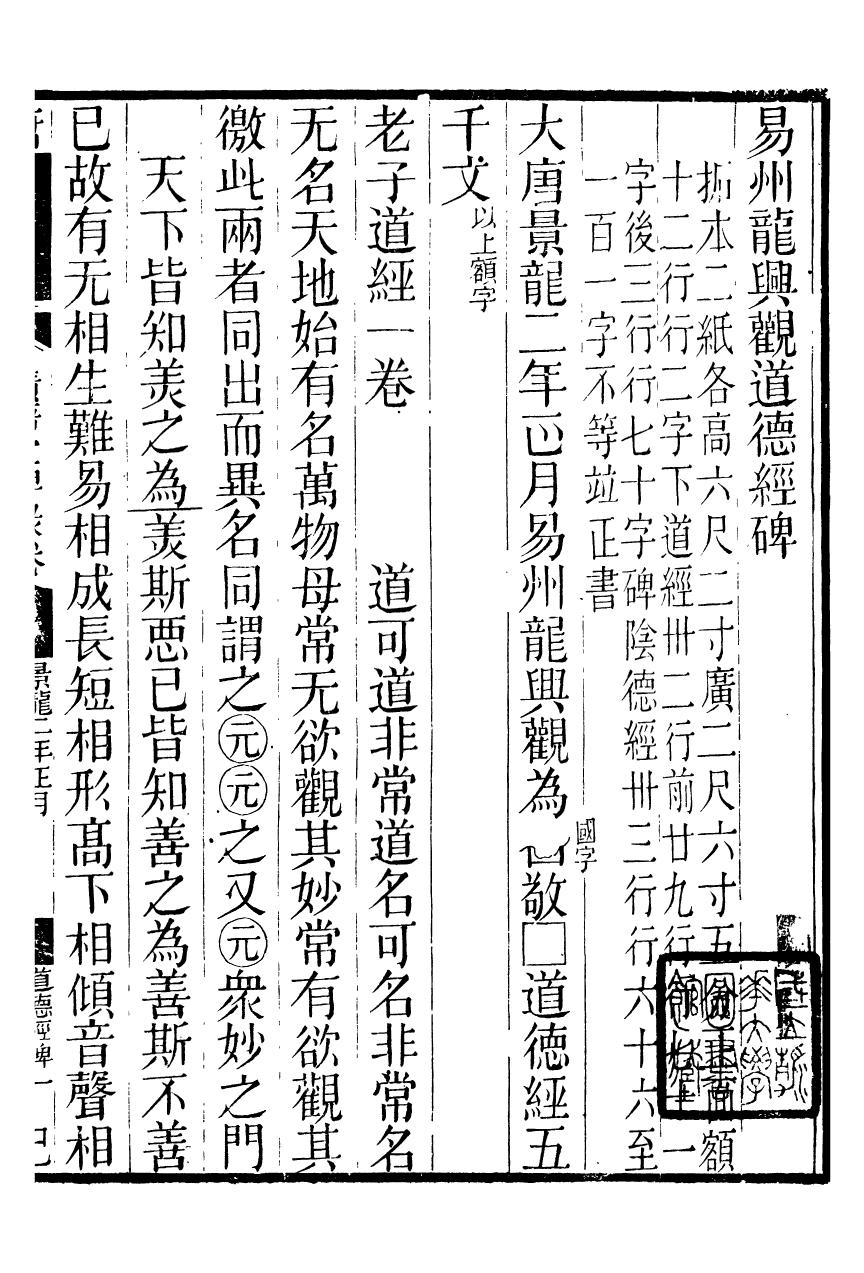 易州龍興觀道德經碑
拓本二紙各高六尺二寸廣二尺六寸五分正書額
十二行行二字下道經卅二行前廿九行行一
字後三行行七十字碑陰德經卅三行行六十六至
一百一字不等竝正書
大唐景龍二年正月易州龍興觀為國字敬□道德經五
千文以上額字
老子道經一卷 道可道非常道名可名非常名
无名天地始有名萬物母常无欲觀其妙常有欲觀其
徼此兩者同出而異名同謂之元元之又元衆妙之門
天下皆知美之為美斯惡已皆知善之為善斯不善
已故有无相生難易相成長短相形髙下相傾音聲相
景龍二年正月
道德經碑一